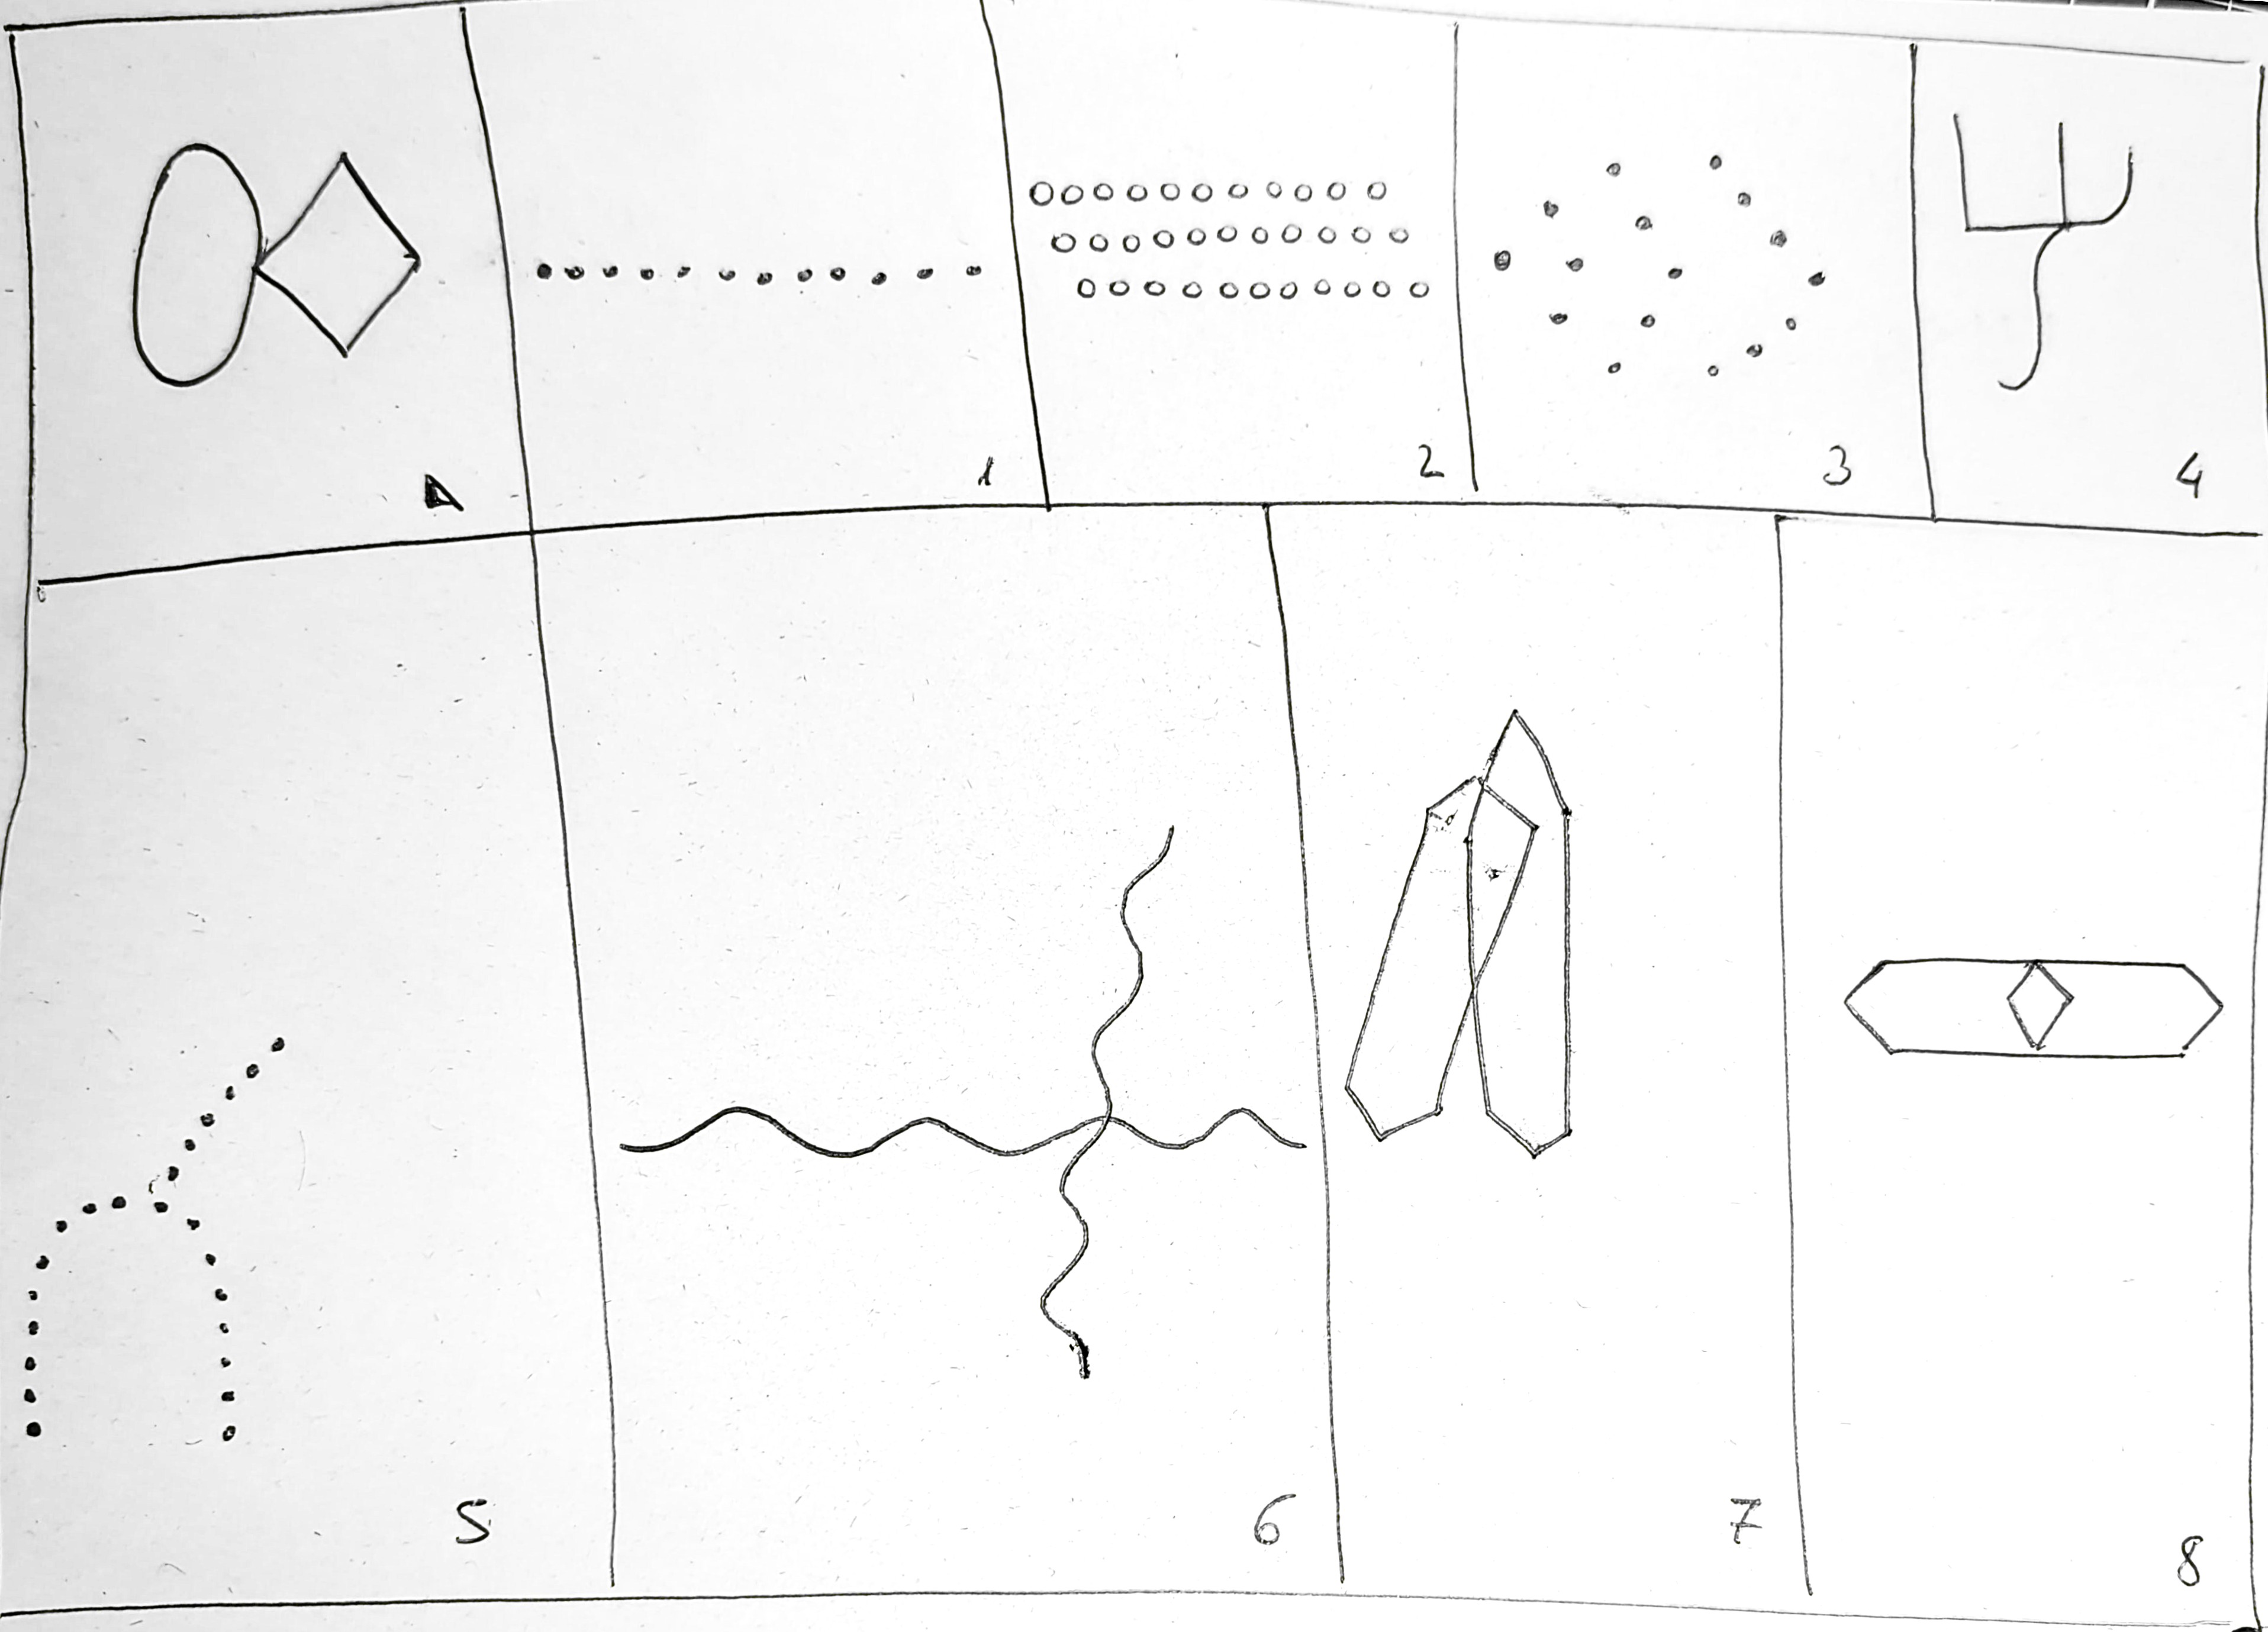 A
1
2
3
4
5
6
7
8